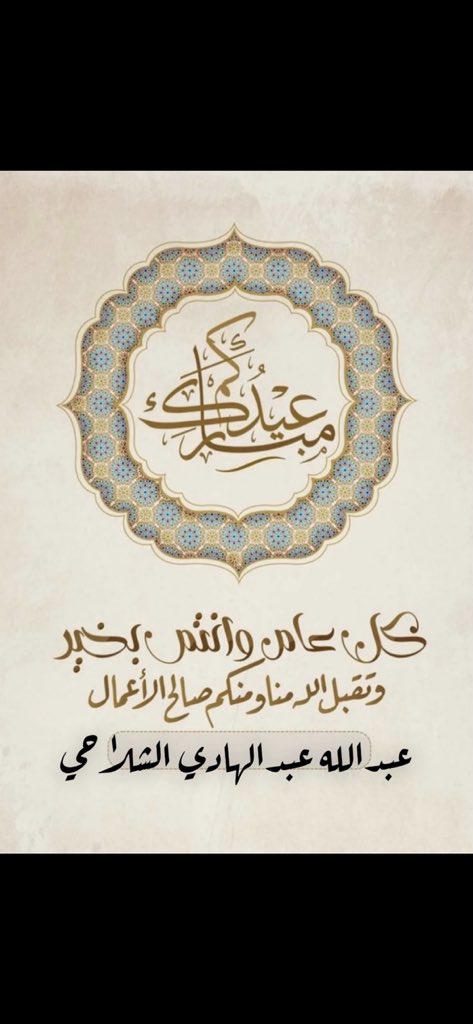 عيدكم مبارك
كل عام وانتم بخير
وتقبل الله منا ومنكم صالح الأعمال
عبد الله عبد الهادي الشلاحي